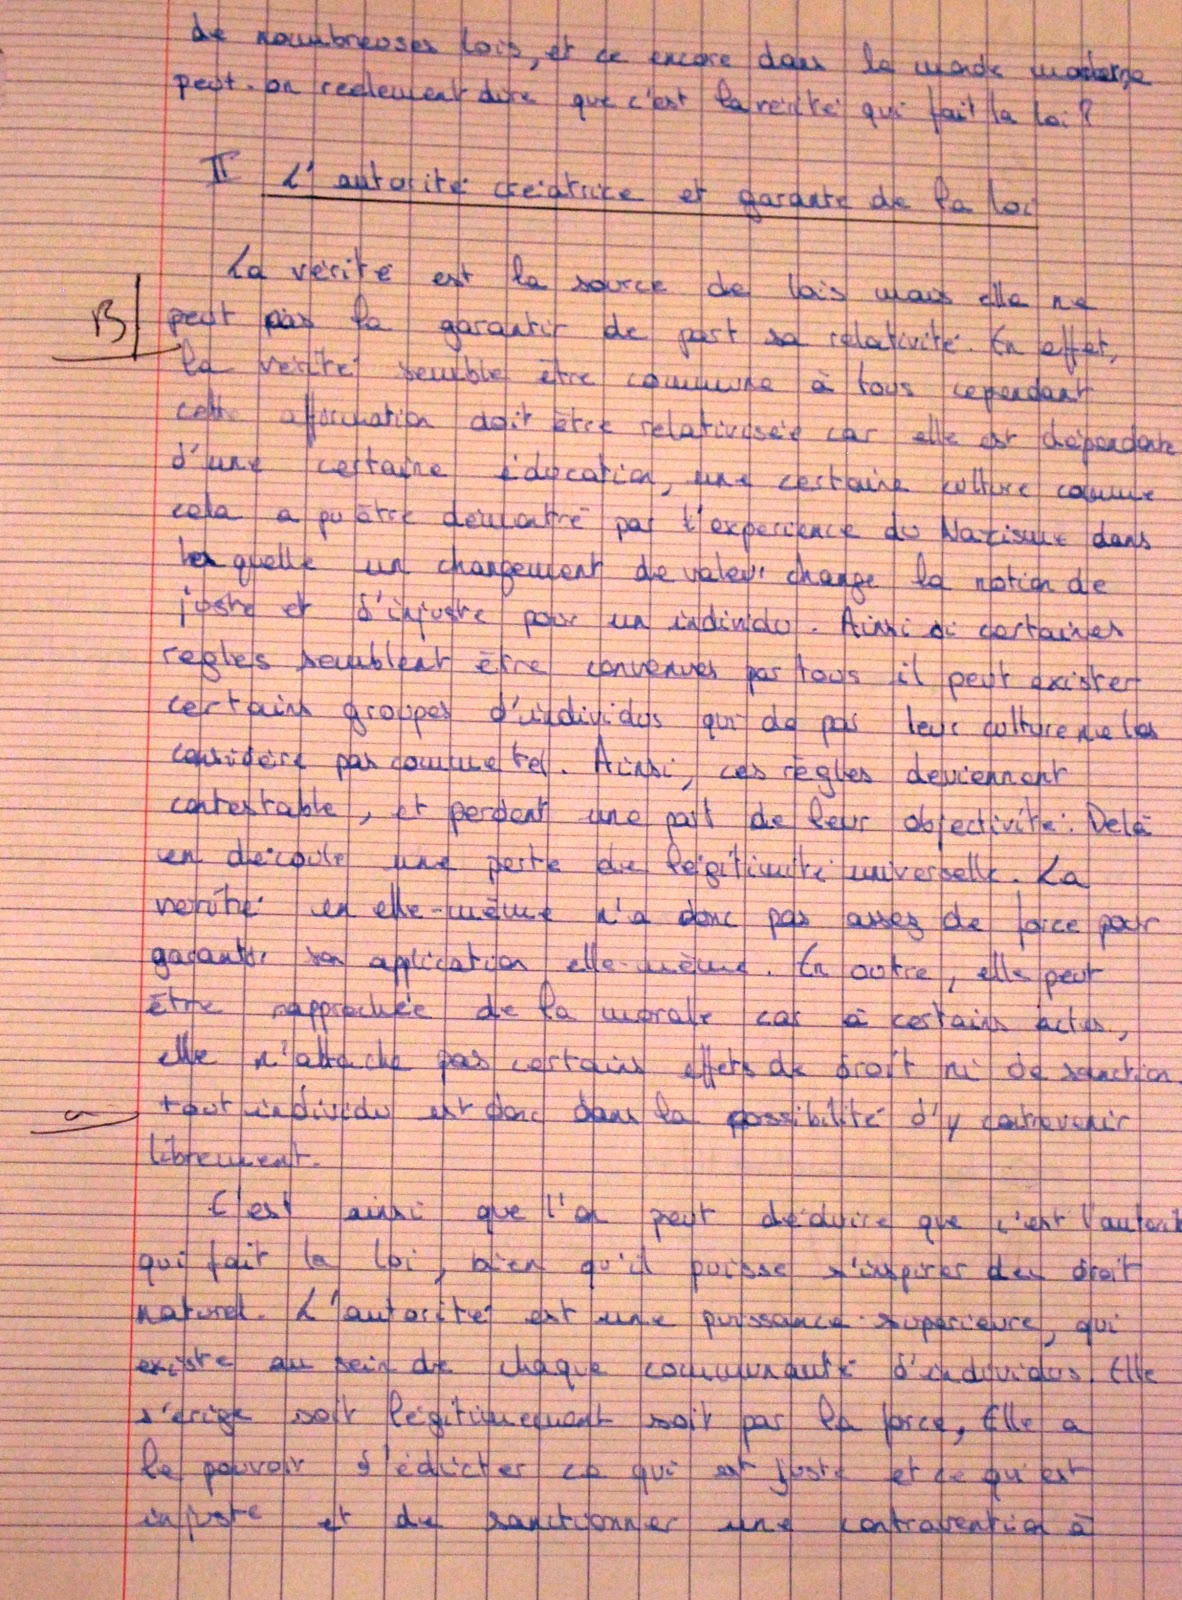 de nombreuses lois, et ce encore dans le monde moderne
peut-on reelement dire que c'est la vérité qui fait la loi ?
II L'autorité créatrice et garante de la loi
La vérité est la source de lois mais elle ne
B
peut pas la garantir de part sa relativité. En effet,
la vérité semble être commune à tous cependant
cette affirmation doit être relativisée car elle est dépendante
d'une certaine éducation, une certaine culture comme
cela a pu être démontré par l'experience du Nazisme dans
laquelle un changement de valeur change la notion de
juste et d'injuste pour un individu. Ainsi si certaines
regles semblent être convenues par tous il peut exister
certains groupes d'individus qui de par leur culture ne les
considère pas comme tel. Ainsi, ces règles deviennent
contestable, et perdent une part de leur objectivité. Delà
en découle une perte de légitimité universelle. La
verité en elle-même n'a donc pas assez de force pour
garantir son application elle-même. En outre, elle peut
être rapprochée de la morale car à certains actes,
elle n'attache pas certains effets de droit ni de sanction.
tout individu est donc dans la possibilité d'y contrevenir
librement.
C'est ainsi que l'on peut déduire que c'est l'autorité
qui fait la loi, bien qu'il puisse s'inspirer du droit
naturel. L'autorité est une puissance superieure, qui
existe au sein de chaque communauté d'individus. Elle
s'érige soit légitimement soit par la force, Elle a
le pouvoir d'édicter ce qui est juste et ce qu'est
injuste et de sanctionner une contravention à